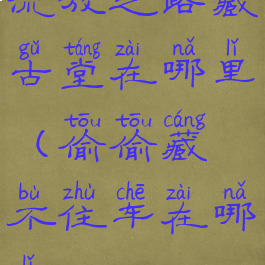 流放之路藏
gǔ táng zài nǎ lǐ
古堂在哪里
tōu tōu cáng
(偷偷藏
bù zhù chē zài nǎ
不住车在哪
lǐ